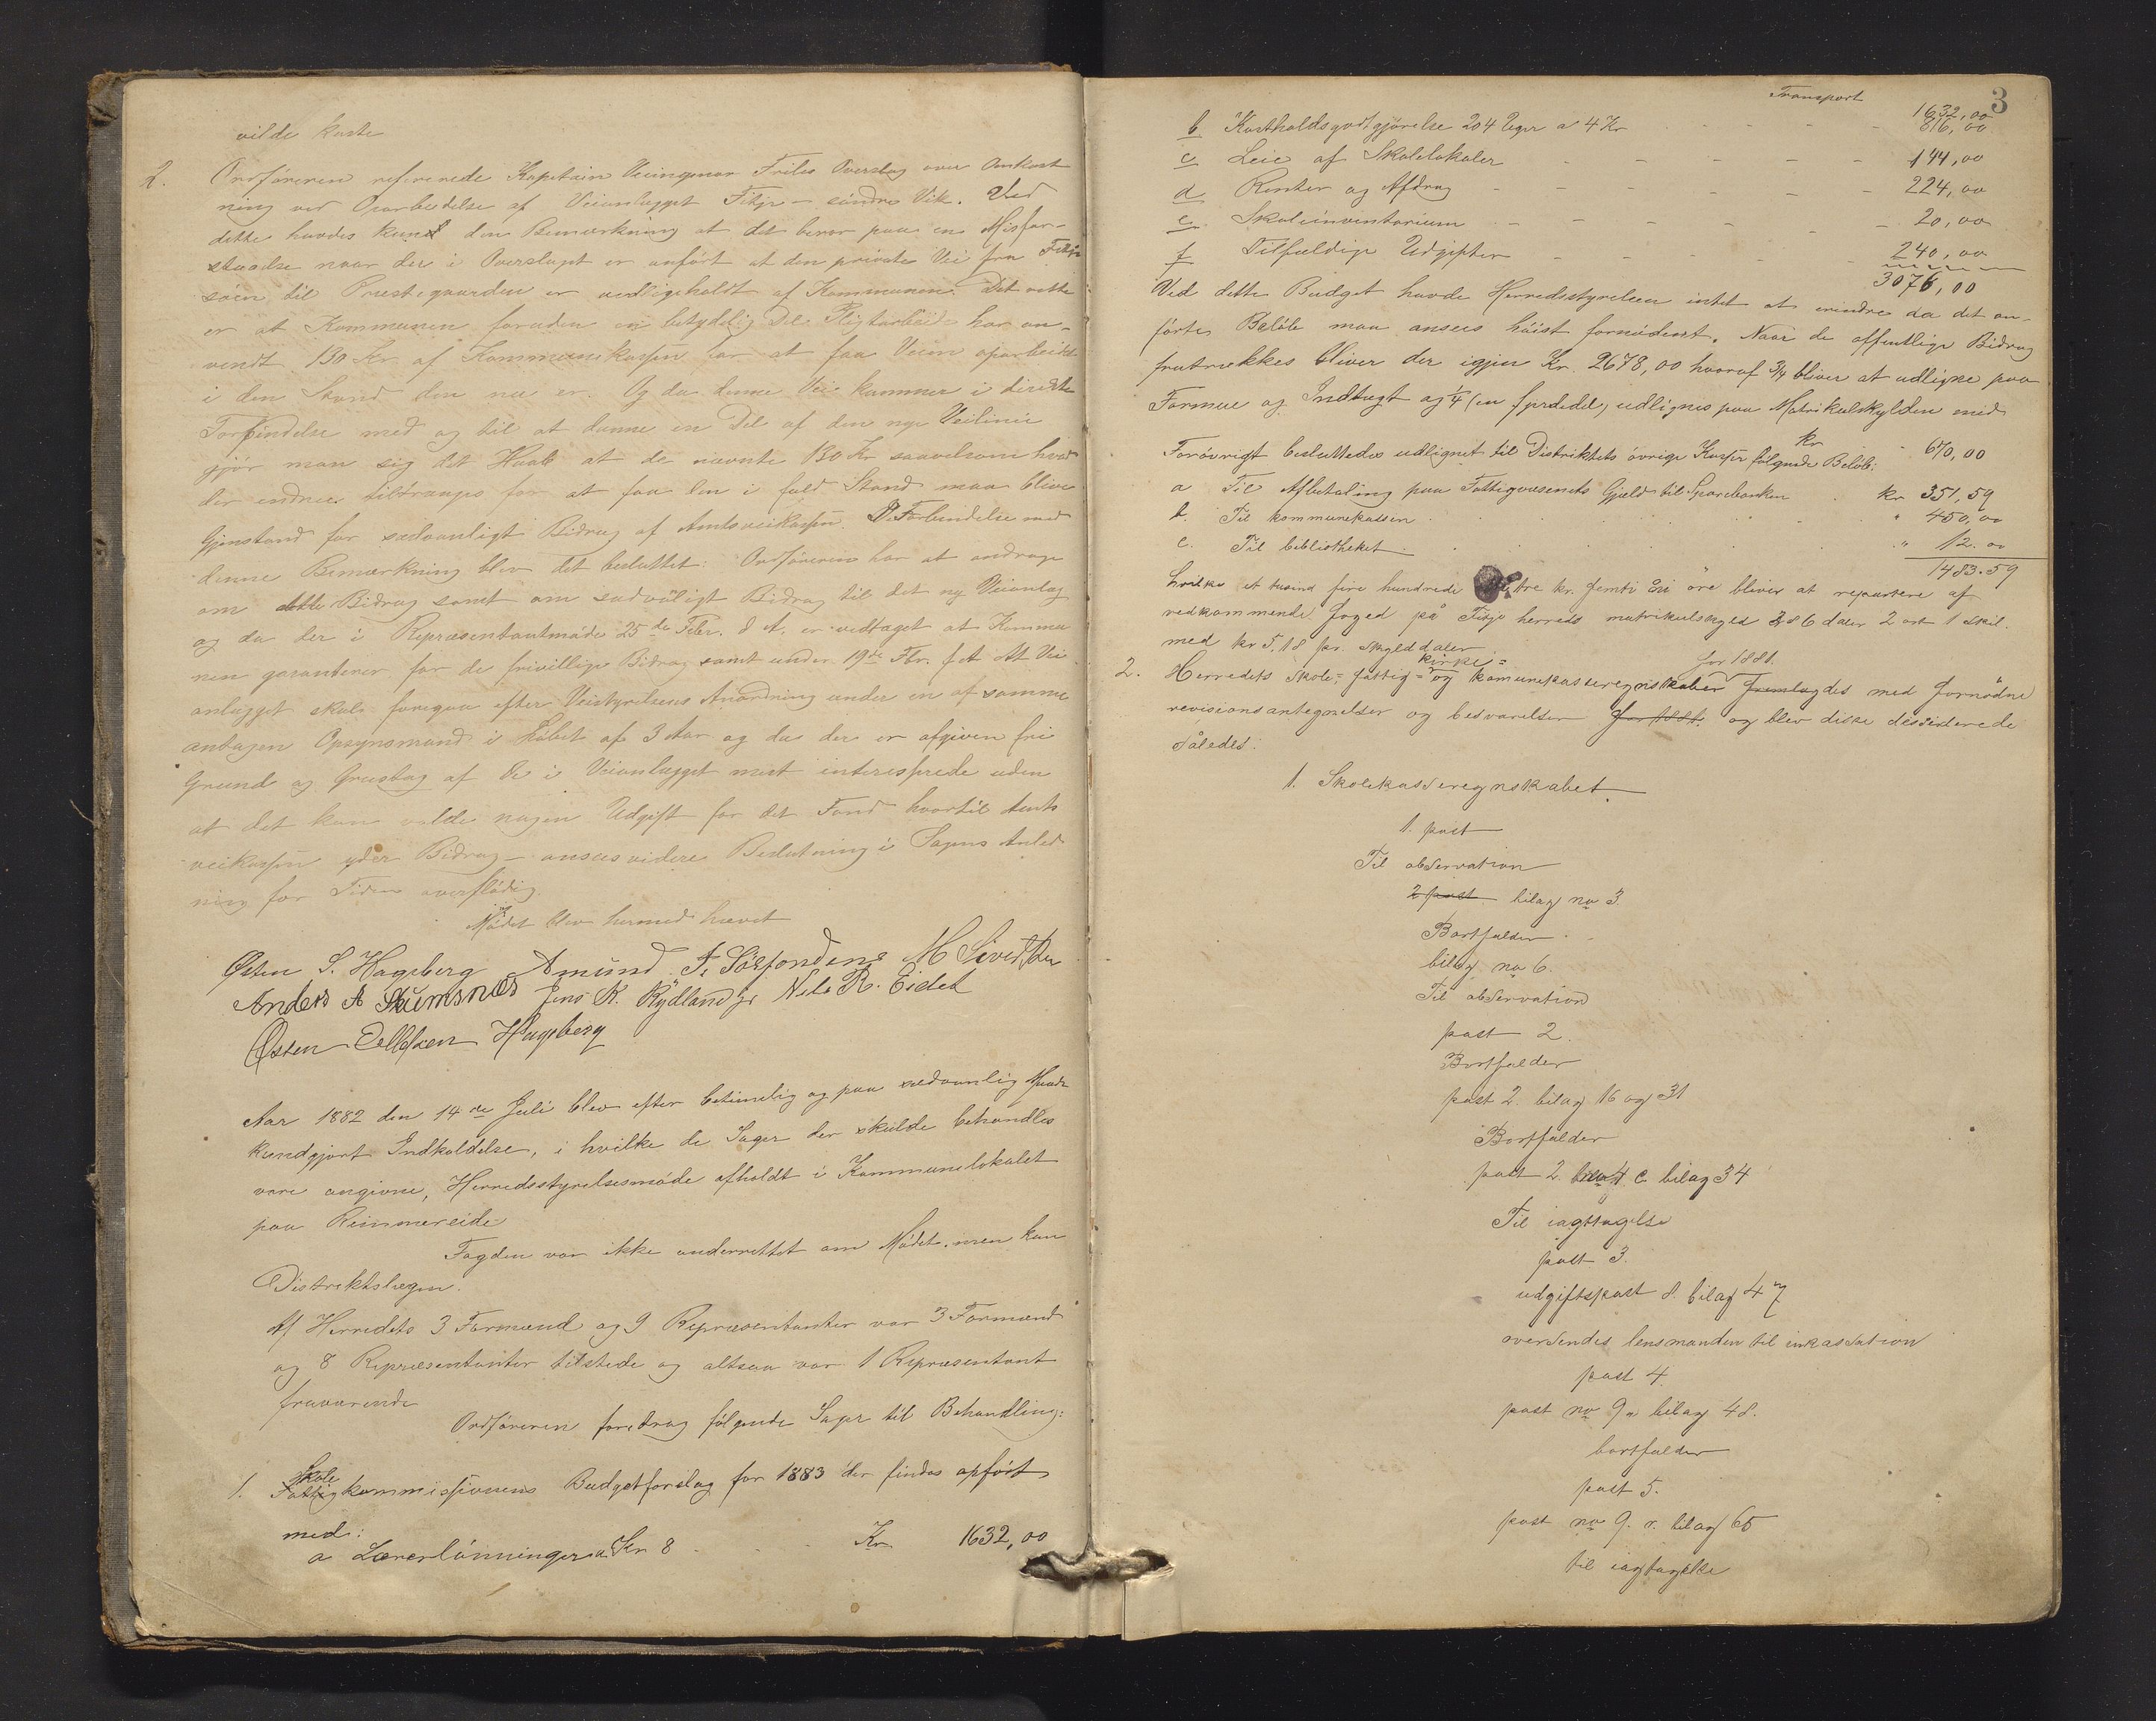 vilde koste
2. Ordføreren refererede Kapitain Veiingeniør Friles Overslag over Omkost
ning ved Oparbeidelse af Veianlægget Fitje – søndre Vik. Ved
dette havdes kund den Bemærkning at det beror paa en Misfor-
staaelse naar der i Overslaget er anført at den private Vei fra Fitje
søen til Præstegaarden er vedligeholdt af Kommunen. Det rette
er at Kommunen foruden en betydelig Del Pligtarbeide har an-
vendt 130 Kr af Kommunekassen for at faa Veien oparbeidet
i den Stand den nu er. Og da denne Vei kommer i direkte
Forbindelse med og til at danne en Del af den nye Veilinie
gjør man sig det Haab at de nævnte 130 Kr saavelsom hvad
der endnu tiltrænges for at faa den i fuld Stand maa blive
Gjenstand for sædvanligt Bidrag af Amtsveikassen. I Forbindelse med
denne Bemærkning blev det besluttet: Ordføreren har at andrage
om dette Bidrag samt om sædvanligt Bidrag til det ny Veianlæg
og da der i Repræsentantmøde 25de Febr. d A. er vedtaget at Kommu
nen garanterer for de frivillige Bidrag samt under 19de Fbr. f A At Vei
anlægget skal foregaa efter Veistyrelsens Anordning under en af samme
antagen Opsynsmand i Løbet af 3 Aar og da der er afgiven fri
Grund og Grustag af de i Veianlægget mest interesserede uden
at det kan volde nogen Udgift for det Fond hvortil Amts
veikassen yder Bidrag – ansees videre Beslutning i Sagens Anled
ning for Tiden overflødig.
Mødet blev hermed hævet
Østen S. Hageberg Amund J. Sørfonden M Sivertsen
Anders A Skumsnes Jens K. Rydland jr Nels R. Eidet
Østen Ellefsen Hageberg
Aar 1882 den 14de Juli blev efter betimelig og paa sædvanlig Maade
kundgjort Indkaldelse, i hvilke de Sager der skulde behandles
vare angivne, Herredsstyrelsesmøde afholdt i Kommunelokalet
paa Rimmereide
Fogden var ikke underrettet om Mødet, men kun
Distriktslægen.
Af Herredets 3 Formænd og 9 Repræsentanter var 3 Formænd
og 8 Repræsentanter tilstede og altsaa var 1 Repræsentant
fraværende
Ordføreren foredrog følgende Sager til Behandling:
1. Skole
Fattigkommissionens Budgetforslag for 1883 der findes opført
med:
a Lærerlønninger a Kr 8 Kr. 1632,00
3
Transport 1632,00
b Kostholdsgodtgjørelse 204 Uger a 4 Kr 816,00
c Leie af Skolelokaler 144,00
d Renter og Afdrag 224,00
e Skoleinventarium 20,00
f Tilfældige Udgifter 240,00
3076,00
Ved dette Budget havde Herredsstyrelsen intet at erindre da det an-
førte Beløb maa ansees høist fornødent. Naar de offentlige Bidrag
fratrækkes bliver der igjen Kr. 2678,00 hvoraf 3/4 bliver at udligne paa
Formue og Indtægt og 1/4 (en fjerdedel) udlignes paa Matrikulskylden med
kr 670,00
Forøvrigt besluttedes udlignet til Distriktets øvrige Kasser følgende Beløb:
a Til Afbetaling paa Fattigvæsenets Gjæld til Sparebanken kr 351,59
b. Til kommunekassen " 450,00
c. Til bibliotheket " 12.00
1483.59
hvilke et tusind fire hundrede tre kr. femti øre bliver at repartere af
vedkommende foged på Fitje herreds matrikulskyld 286 daler 2 ort 1 skil.
med kr 5,18 pr. skylddaler
2. Herredets skole-, fattig- kirke- og komunekasseregnskaber for 1881. fremlagdes med fornødne
revisionsantegnelser og besvarelser for 1881. og blev disse desiderede
således:
1. Skolekasseregnskabet.
1. post
Til observation
2 post bilag no 3.
Bortfalder
bilag no 6.
Til observation
post 2.
Bortfalder
post 2. bilag 16 og 31
Bortfalder
post 2. c bilag 34
Til iagttagelse
post 3.
udgiftspost 8. bilag 47
oversendes lensmanden til inkassation
post 4.
post no 9 a bilag 48.
bortfalder
post 5.
post no 9. r. bilag 65
til iagtagelse